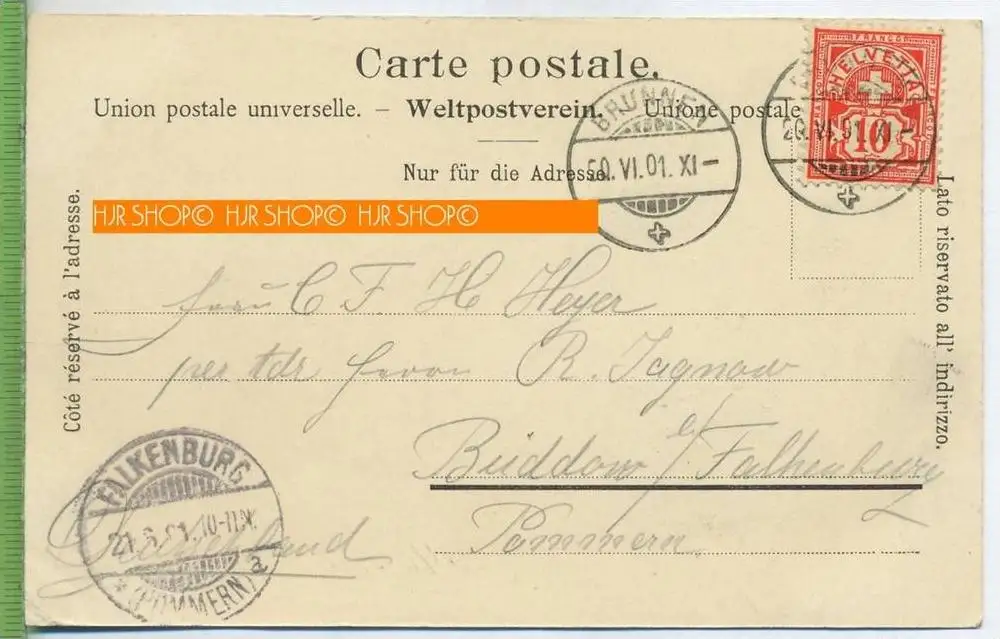 Carte postale.
Union postale universelle. – Weltpostverein. Unione postale
Nur für die Adresse.
HJR SHOP© HJR SHOP© HJR SHOP©
Côté réservé à l'adresse.
Lato riservato all' indirizzo.
FRANCO
HELVETIA
10
BRUNNEN
20. VI. 01. XI–
20. VI. 01. XI–
C F H Heyer
per Adr Herrn R. Jagnow
Büddow b/ Falkenburg
Pommern
Deutschland
FALKENBURG
21.6.01. 10-11.N.
* (POMMERN) a